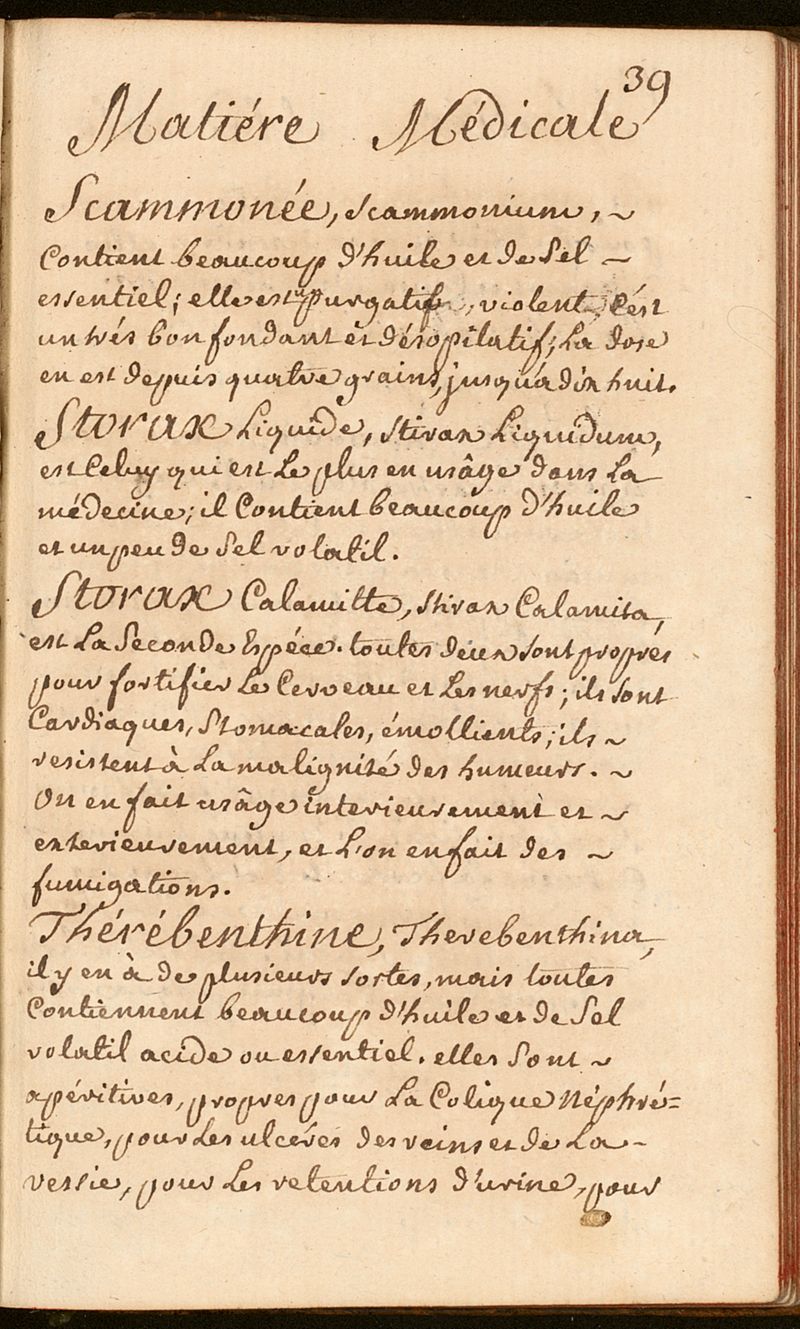 39
Matiére Médicale
Scammonée, scammonium, ~
Contient beaucoup d'huile et de Sel ~
essentiel; elle est purgatif, violent, C'ést
un trés bon fondant et désopilatif; La dose
en est depuis quatre grains, jusqu'à dix huit.
Storax Liquide, stirax Liquidum,
est Celuy qui est Le plus en usâge dans La
médecine; il Contient beaucoup d'huile
et un peu de Sel volatil.
Storax Calamitte, stirax Calamita,
est La Seconde Espéce. toutes deux sont proprés
pour fortifier Le Cerveau et Les nerfs; ils sont
Cardiaques, Stomacales, émollients; ils ~
resistent à La malignité des humeurs. ~
On en fait usâge interieurement et ~
exterieurement, et L'on en fait des ~
fumigations.
Thérébenthine, Therebenthina,
il y en à de plusieurs sortes, mais toutes
Contiennent beaucoup d'huile et de Sel
volatil acide ou essentiel. elles sont ~
apéritives, propres pour La Colique Néphré=
tique, pour Les ulcéres des reins et de La -
vessie, pour Les retentions d'urine, pour